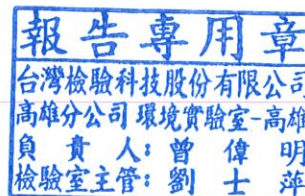 報告專用章
台灣檢驗科技股份有限公司
高雄分公司 環境實驗室-高雄
負責人：曾偉明
檢驗室主管：劉士